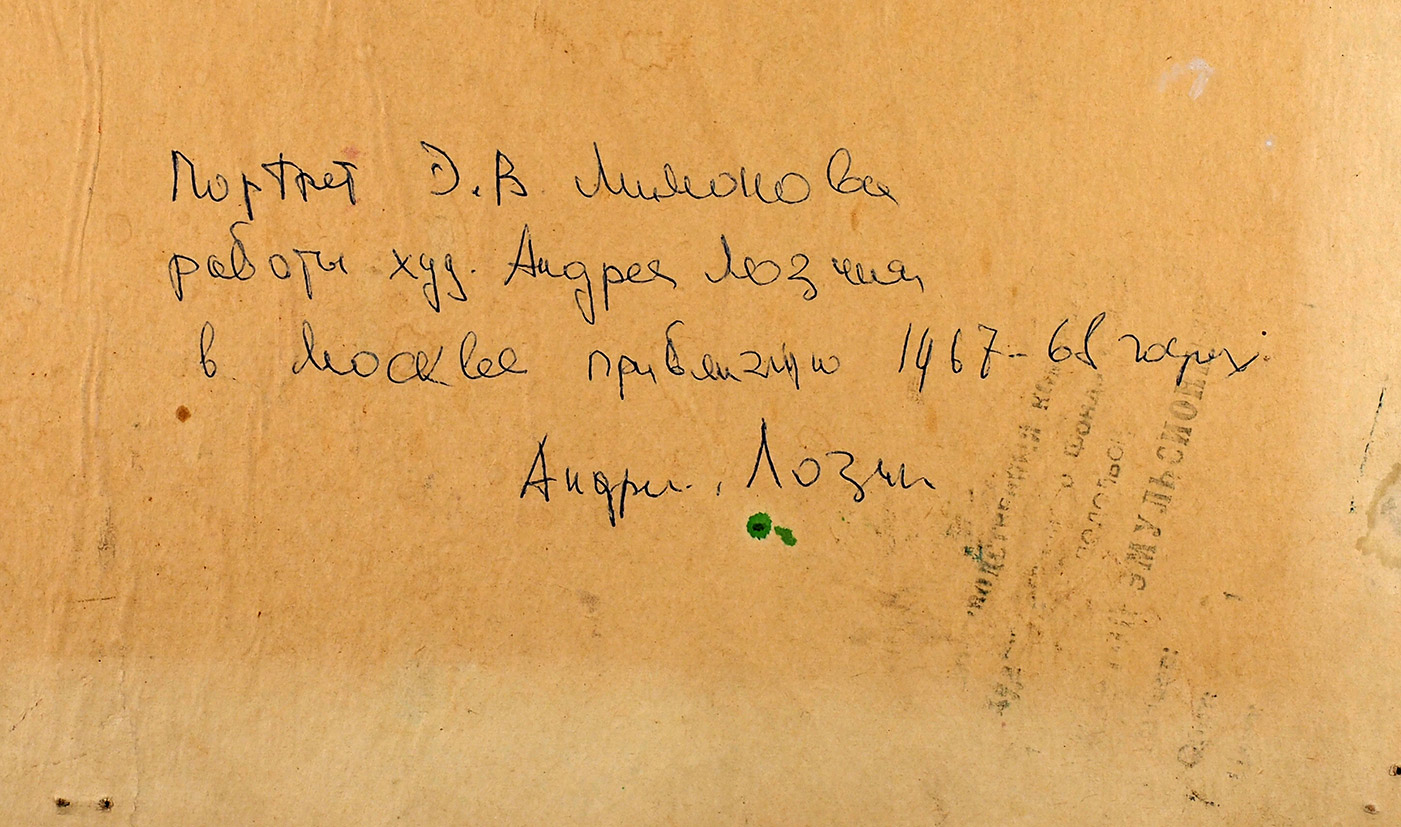 Портрет Э.В Лимонова
работы худ. Андрея Лозина
в Москве приблизно 1967-68 годах.
Андрей Лозин
ЭМУЛЬСИОНН